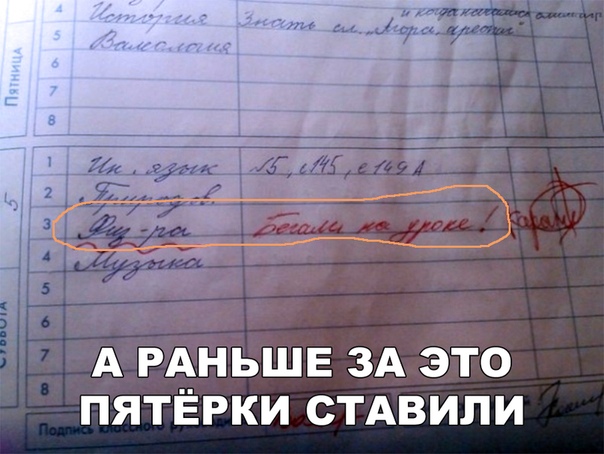 ПЯТНИЦА
4 История Знать сл. „Мора, и когда начались
5 Валеология
6
7
8
5
СУББОТА
1 Ин. язык №5, с145, с149А
2 Природов.
3 Физ-ра Бегали на уроке!
4 Музыка
5
6
7
8
Подпись классного руководителя
А РАНЬШЕ ЗА ЭТО
ПЯТЁРКИ СТАВИЛИ